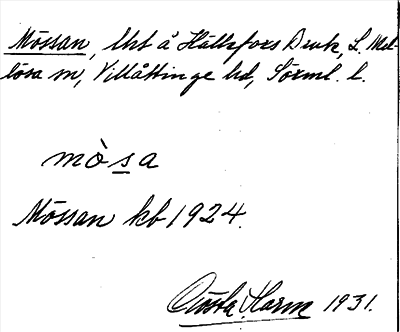 Mössan, lht å Hälleforss Bruk, L. Mel-
lösa sn, Villåttinge hd, Sörml. l.
mòsa
Mössan kb 1924.
Gösta Harm 1931.